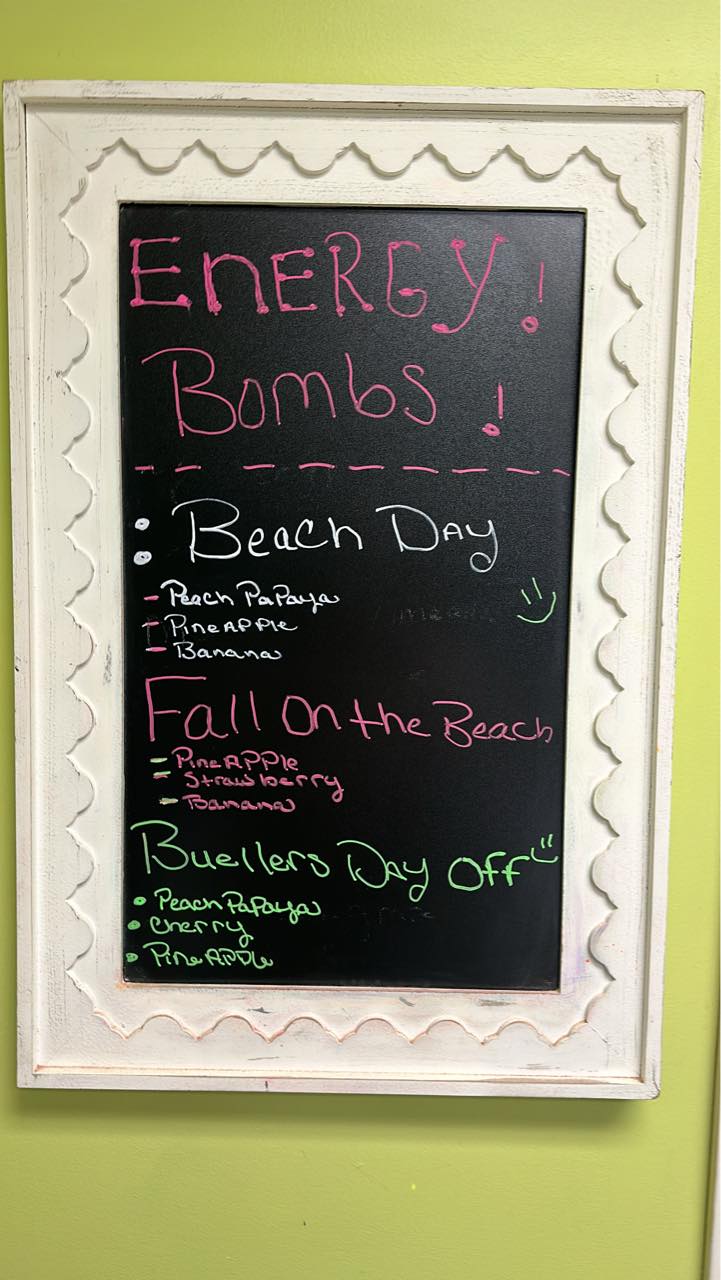 ENERGY!
Bombs!
: Beach Day
- Peach Papaya
- PineAPPle
- Banana
Fall On the Beach
- PineAPPle
- Strawberry
- Banana
Buellers Day Off
• Peach Papaya
• Cherry
• PineAPPle